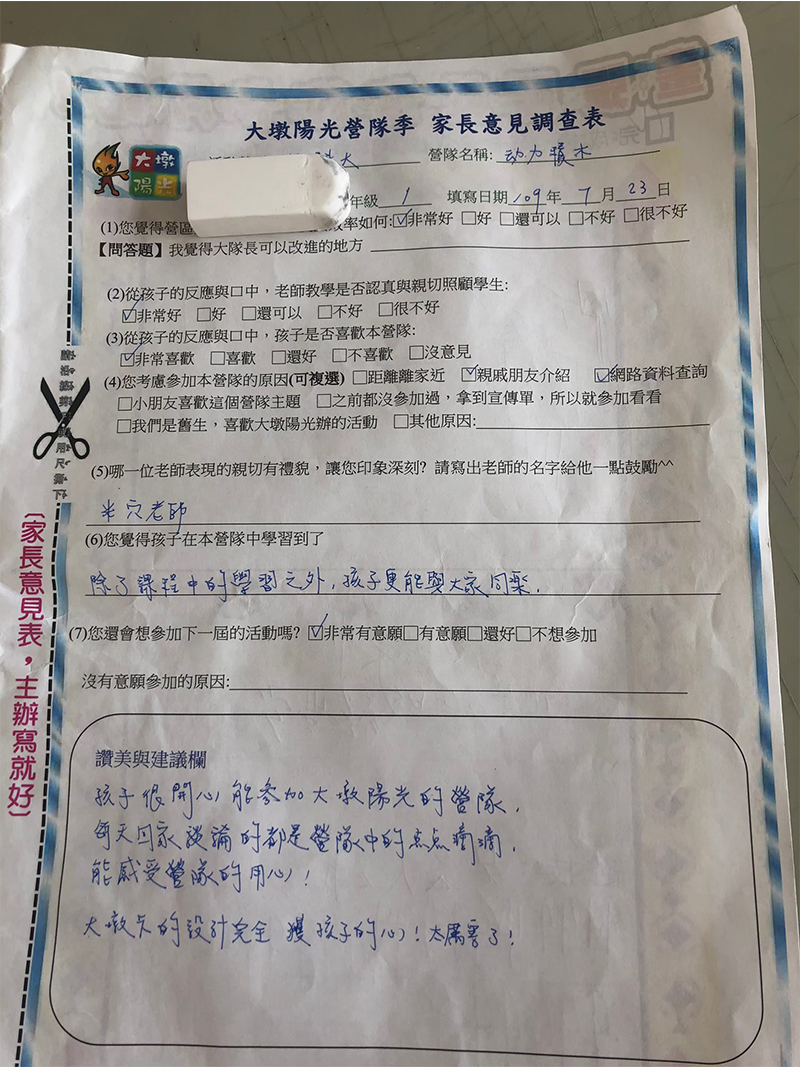 大墩陽光營隊季 家長意見調查表
大墩
陽光
大 營隊名稱: 动力積木
年級 1 填寫日期 109 年 7 月 23 日
(1)您覺得營區 效率如何:☑非常好 □好 □還可以 □不好 □很不好
【問答題】我覺得大隊長可以改進的地方
(2)從孩子的反應與口中，老師教學是否認真與親切照顧學生:
☑非常好 □好 □還可以 □不好 □很不好
(3)從孩子的反應與口中，孩子是否喜歡本營隊:
☑非常喜歡 □喜歡 □還好 □不喜歡 □沒意見
(4)您考慮參加本營隊的原因(可複選) □距離離家近 ☑親戚朋友介紹 ☑網路資料查詢
□小朋友喜歡這個營隊主題 □之前都沒參加過，拿到宣傳單，所以就參加看看
□我們是舊生，喜歡大墩陽光辦的活動 □其他原因:
(5)哪一位老師表現的親切有禮貌，讓您印象深刻? 請寫出老師的名字給他一點鼓勵^^
米穴老師
(6)您覺得孩子在本營隊中學習到了
除了課程中的學習之外，孩子更能與大家同樂.
(7)您還會想參加下一屆的活動嗎? ☑非常有意願□有意願□還好□不想參加
沒有意願參加的原因:
讚美與建議欄
孩子很開心能參加大墩陽光的營隊，
每天回家談論的都是營隊中的点点滴滴，
能感受營隊的用心!
大墩卡的設計完全 獲孩子的心! 太厲害了!
(家長意見表，主辦寫就好)